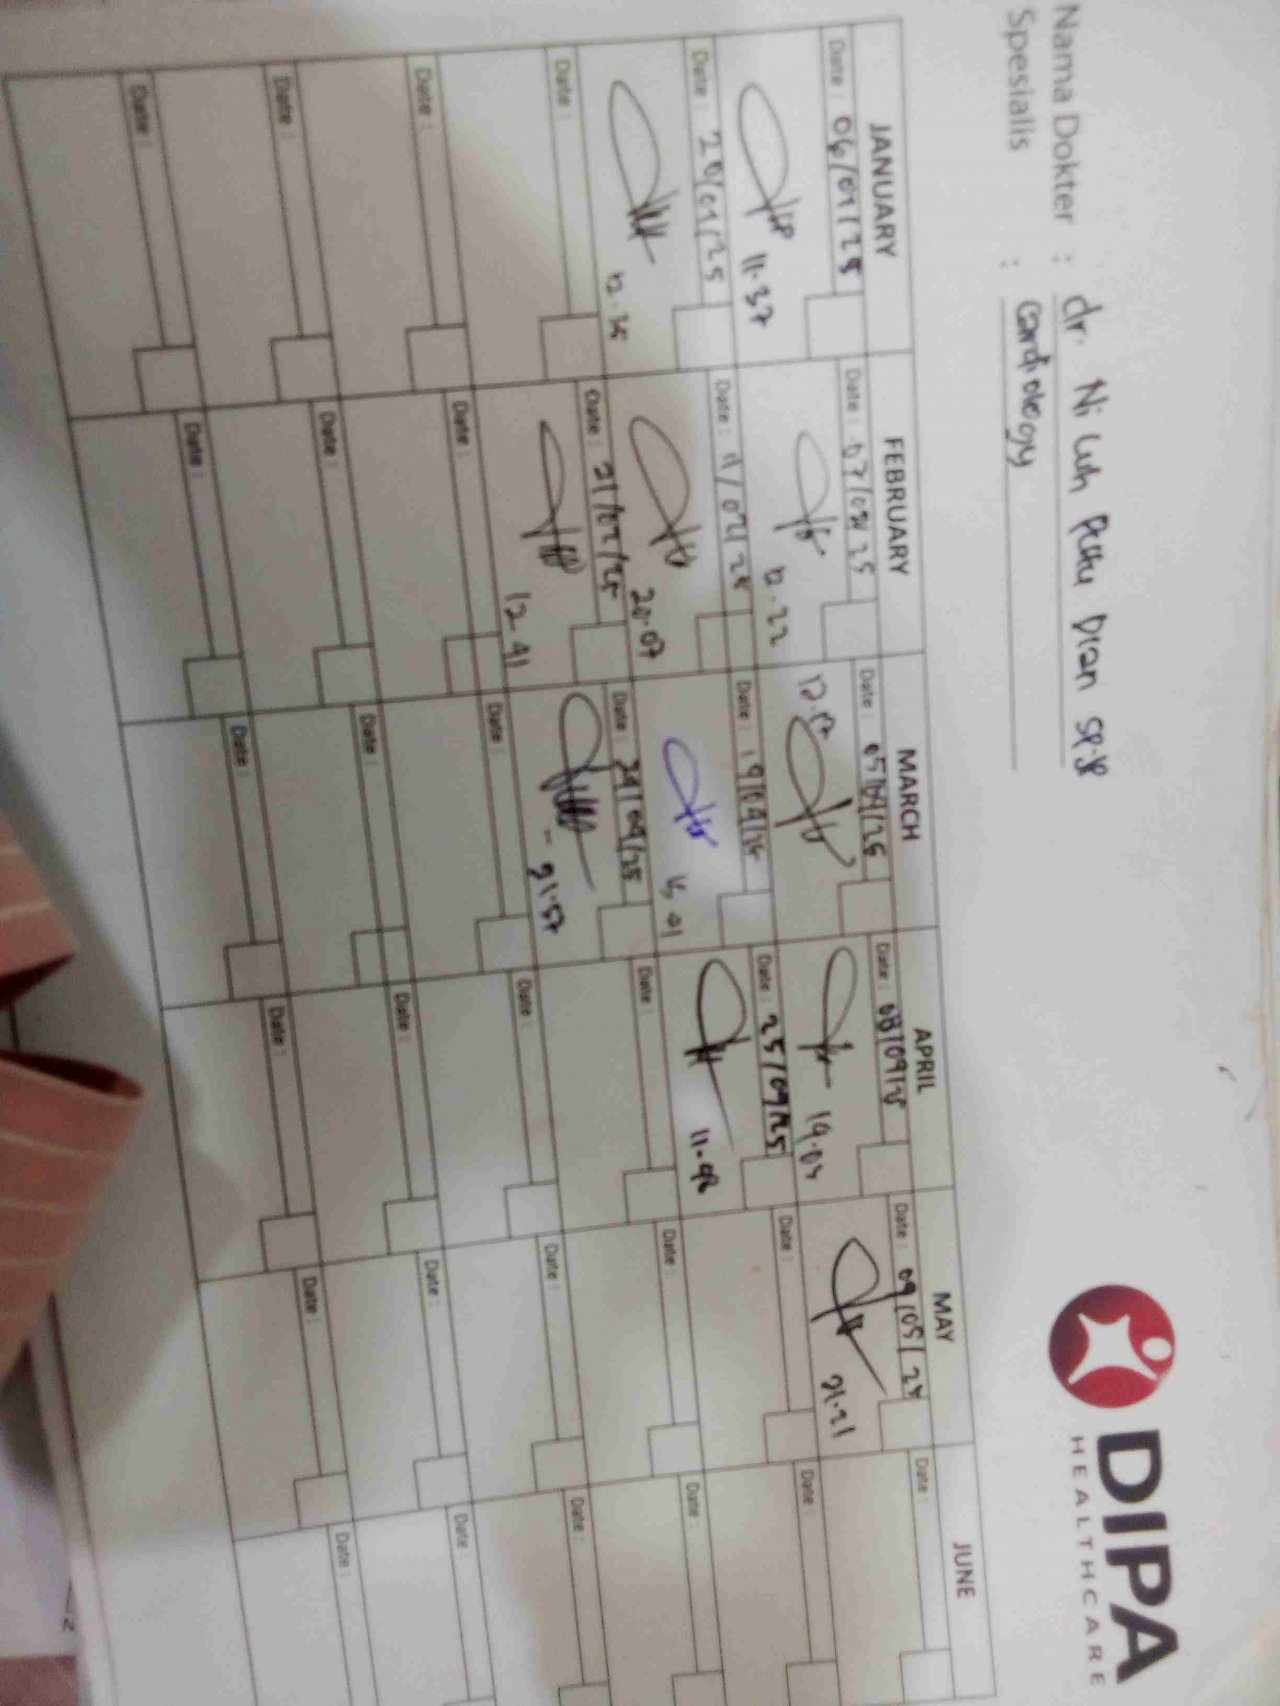 Nama Dokter : dr. Ni Luh Putu Dian SP.JP
Spesialis : Cardiology
DIPA
HEALTHCARE
JANUARY FEBRUARY MARCH APRIL MAY JUNE
Date : 06/01/25 Date : 07/02/25 Date : 05/04/25 Date : 08/04/25 Date : 09/05/25 Date :
11.37 12.22 12.17 19.04 21.21
Date : 20/01/25 Date : 11/02/25 Date : 19/04/25 Date : 25/04/25 Date : Date :
20.07 11.42
Date : Date : 21/02/25 Date : 24/04/25 Date : Date : Date :
12.41 21.57
Date : Date : Date : Date : Date : Date :
Date : Date : Date : Date : Date : Date :
Date : Date : Date : Date : Date : Date :